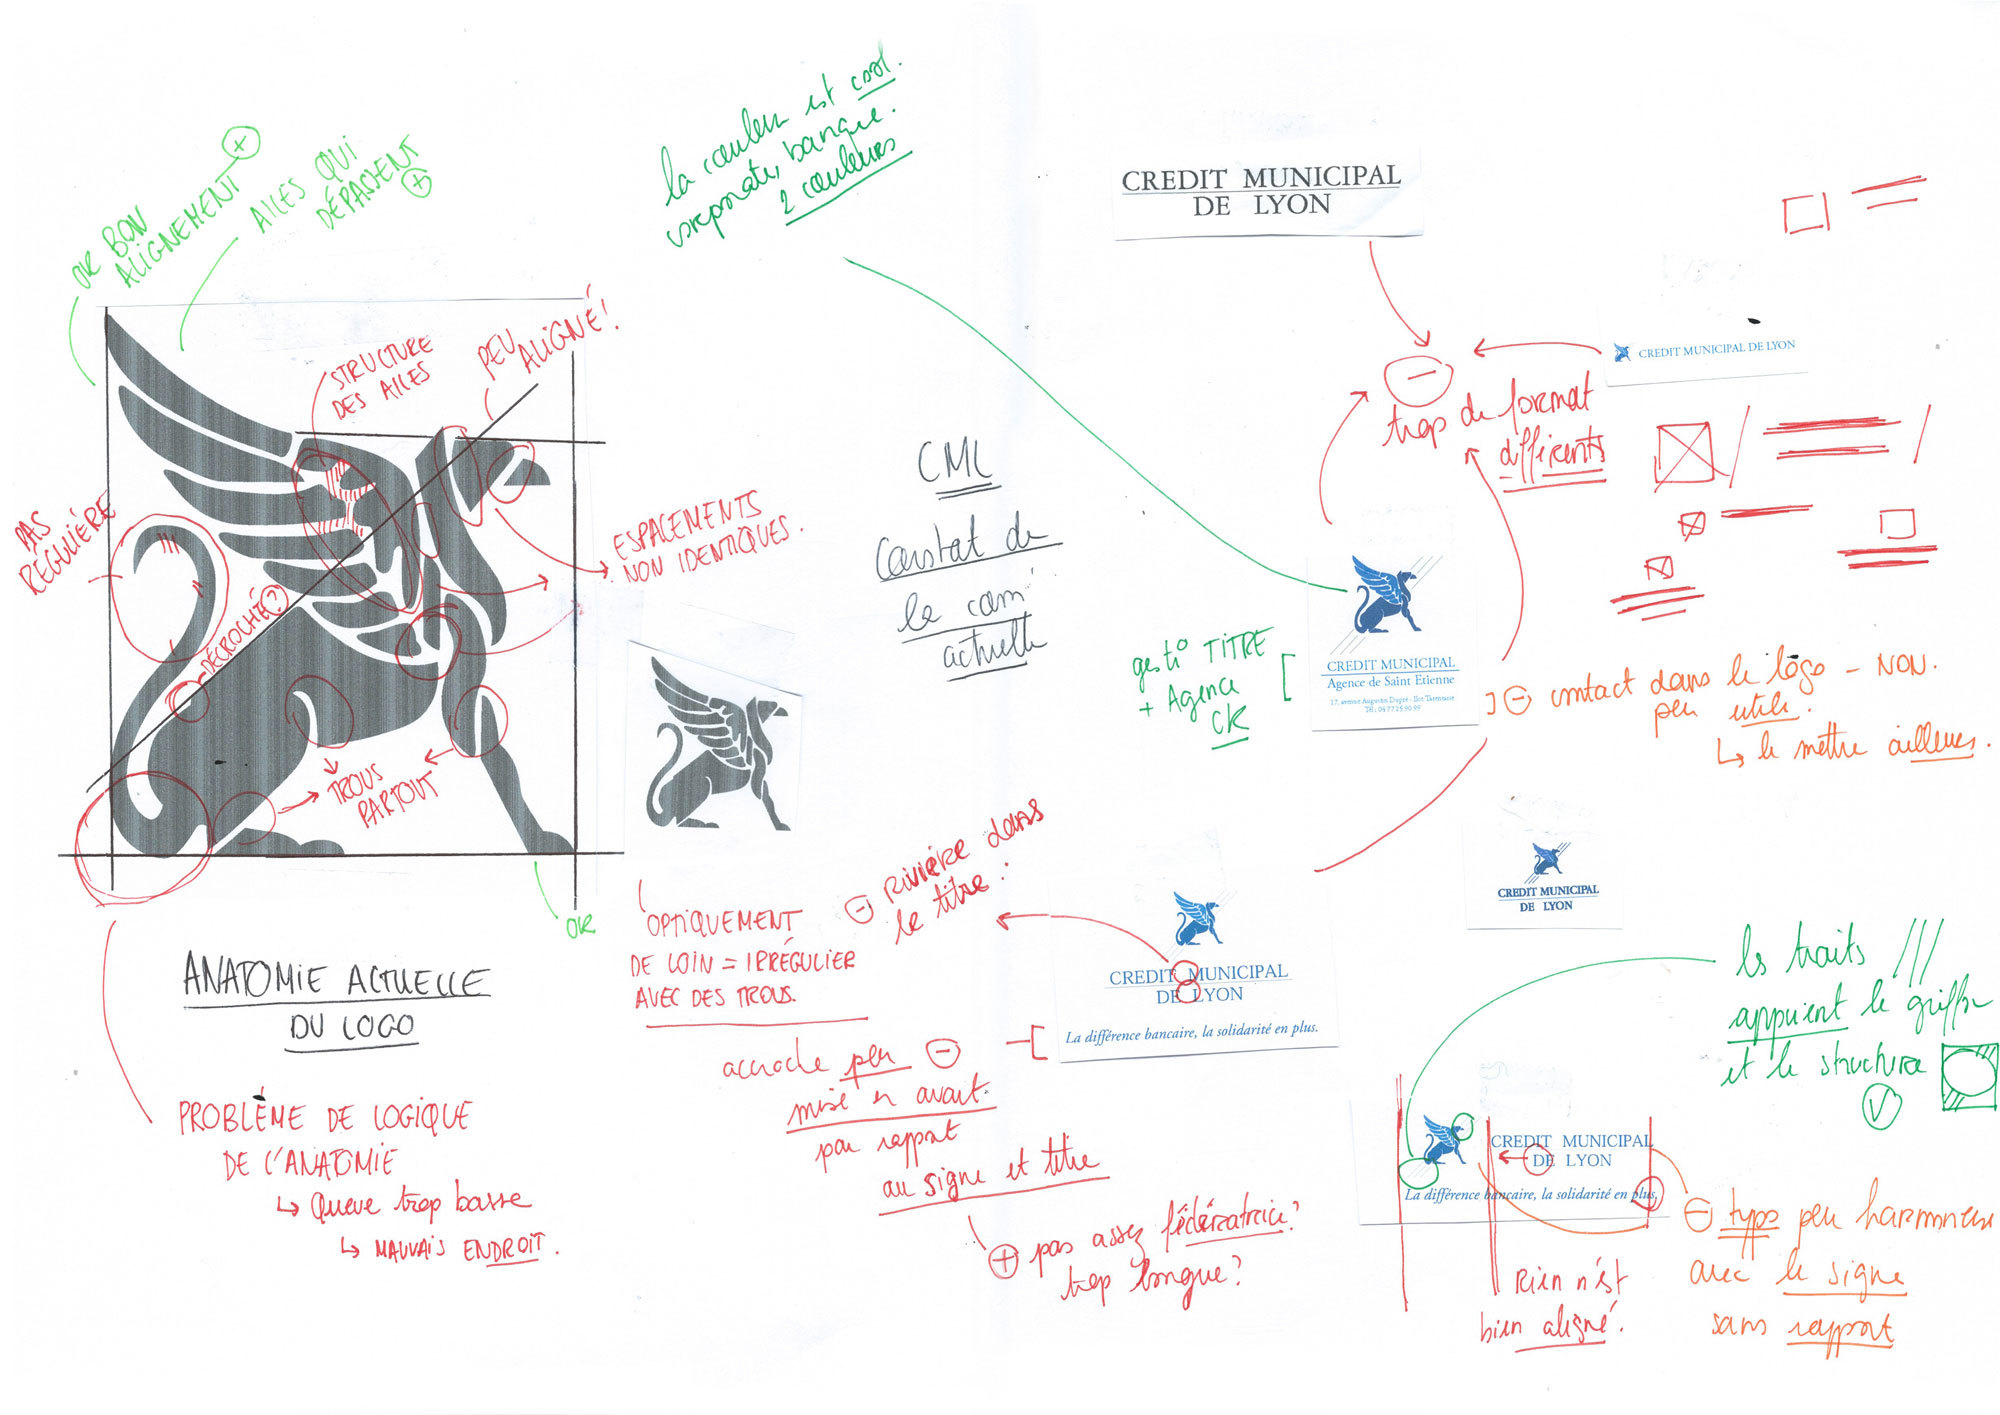 OK BON
ALIGNEMENT +
AILES QUI
DÉPASSENT +
la couleur est cool.
corporate, banque.
2 couleurs
STRUCTURE
DES AILES
PEU
ALIGNÉ!
PAS
RÉGULIÈRE
DÉCROCHÉ?
ESPACEMENTS
NON IDENTIQUES.
TROUS
PARTOUT
OK
ANATOMIE ACTUELLE
DU LOGO
PROBLÈME DE LOGIQUE
DE L'ANATOMIE
↳ Queue trop basse
↳ MAUVAIS ENDROIT.
OPTIQUEMENT
DE LOIN = IRRÉGULIER
AVEC DES TROUS.
CML
Constat de
la com
actuelle
CREDIT MUNICIPAL
DE LYON
CREDIT MUNICIPAL DE LYON
−
trop de format
différents
CREDIT MUNICIPAL
Agence de Saint Etienne
17, avenue Augustin Dupré - Ilot Tarentaise
Tél : 04 77 25 90 99
gesti° TITRE
+ Agence
OK
− contact dans le logo - NON.
peu utile.
↳ le mettre ailleurs.
CREDIT MUNICIPAL
DE LYON
− rivière dans
le titre!
CREDIT MUNICIPAL
DE LYON
La différence bancaire, la solidarité en plus.
accroche peu −
mise en avant
par rapport
au signe et titre
+ pas assez fédératrice?
trop longue?
les traits ///
appuient le griffon
et le structure
CREDIT MUNICIPAL
DE LYON
La différence bancaire, la solidarité en plus.
Rien n'est
bien aligné.
− typo peu harmonieuse
avec le signe
sans rapport